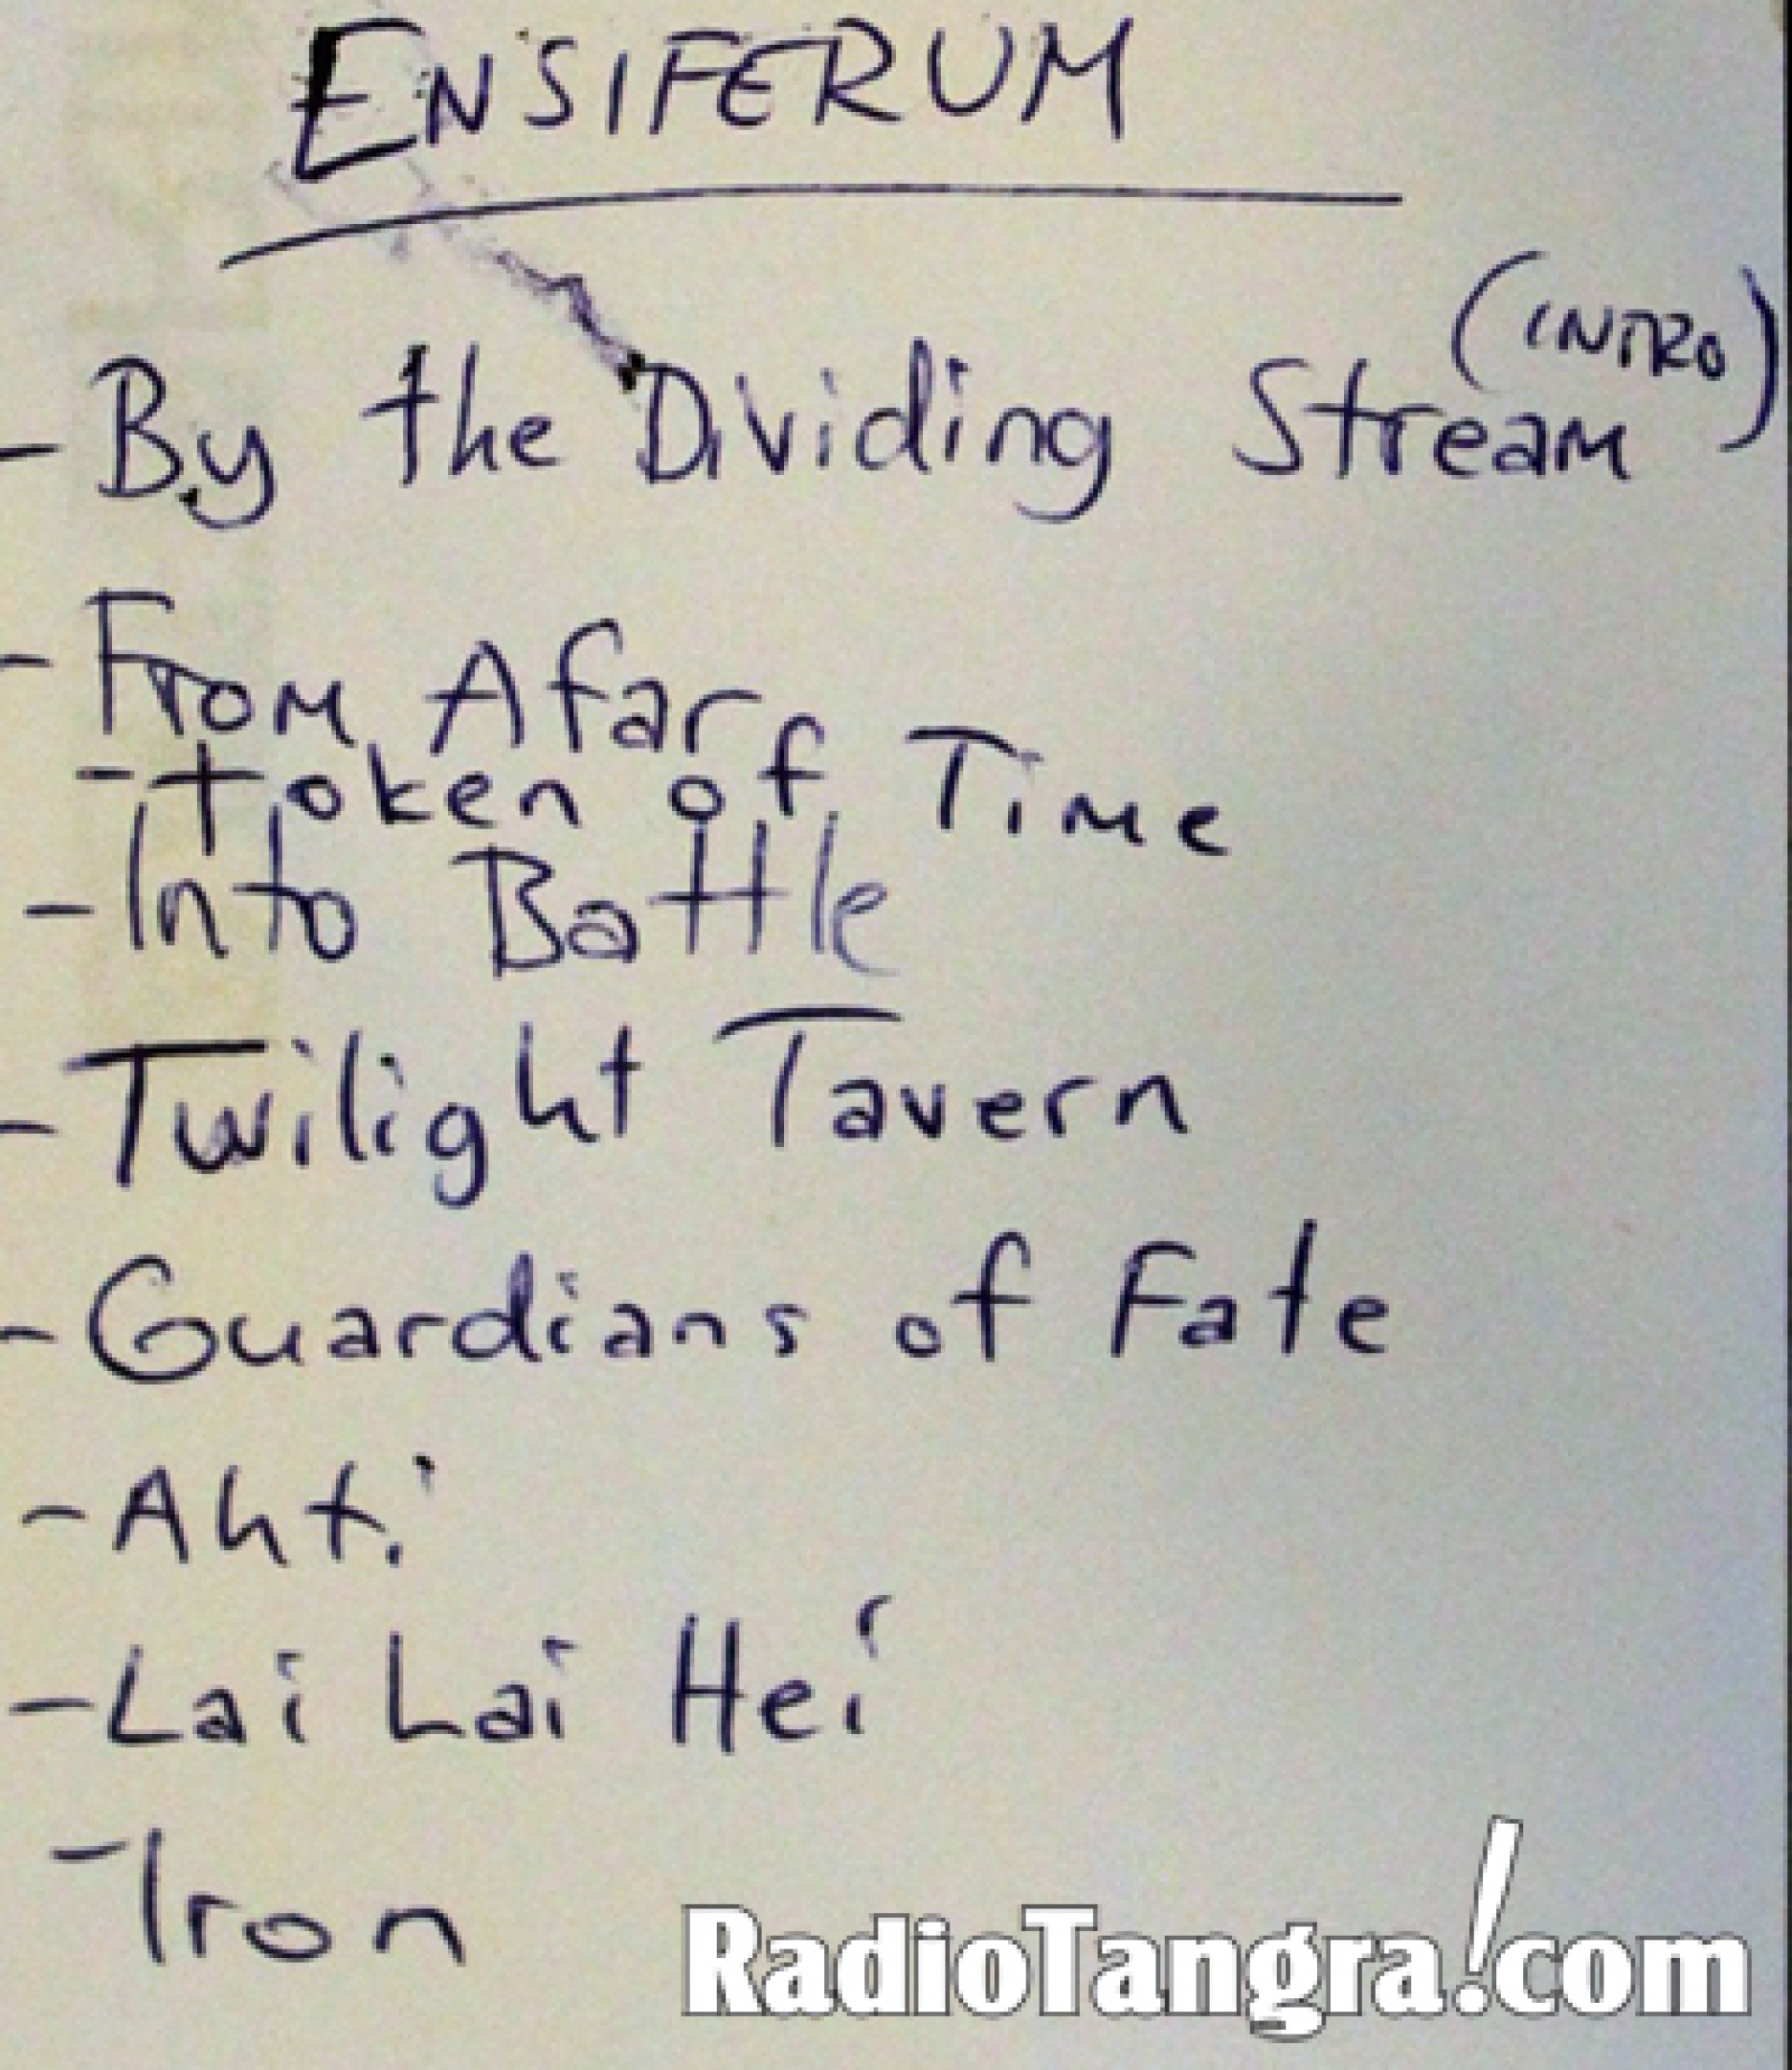 ENSIFERUM
(INTRO)
- By the Dividing Stream
- From Afar
- Token of Time
- Into Battle
- Twilight Tavern
- Guardians of Fate
- Ahti
- Lai Lai Hei
- Iron
RadioTangra!com